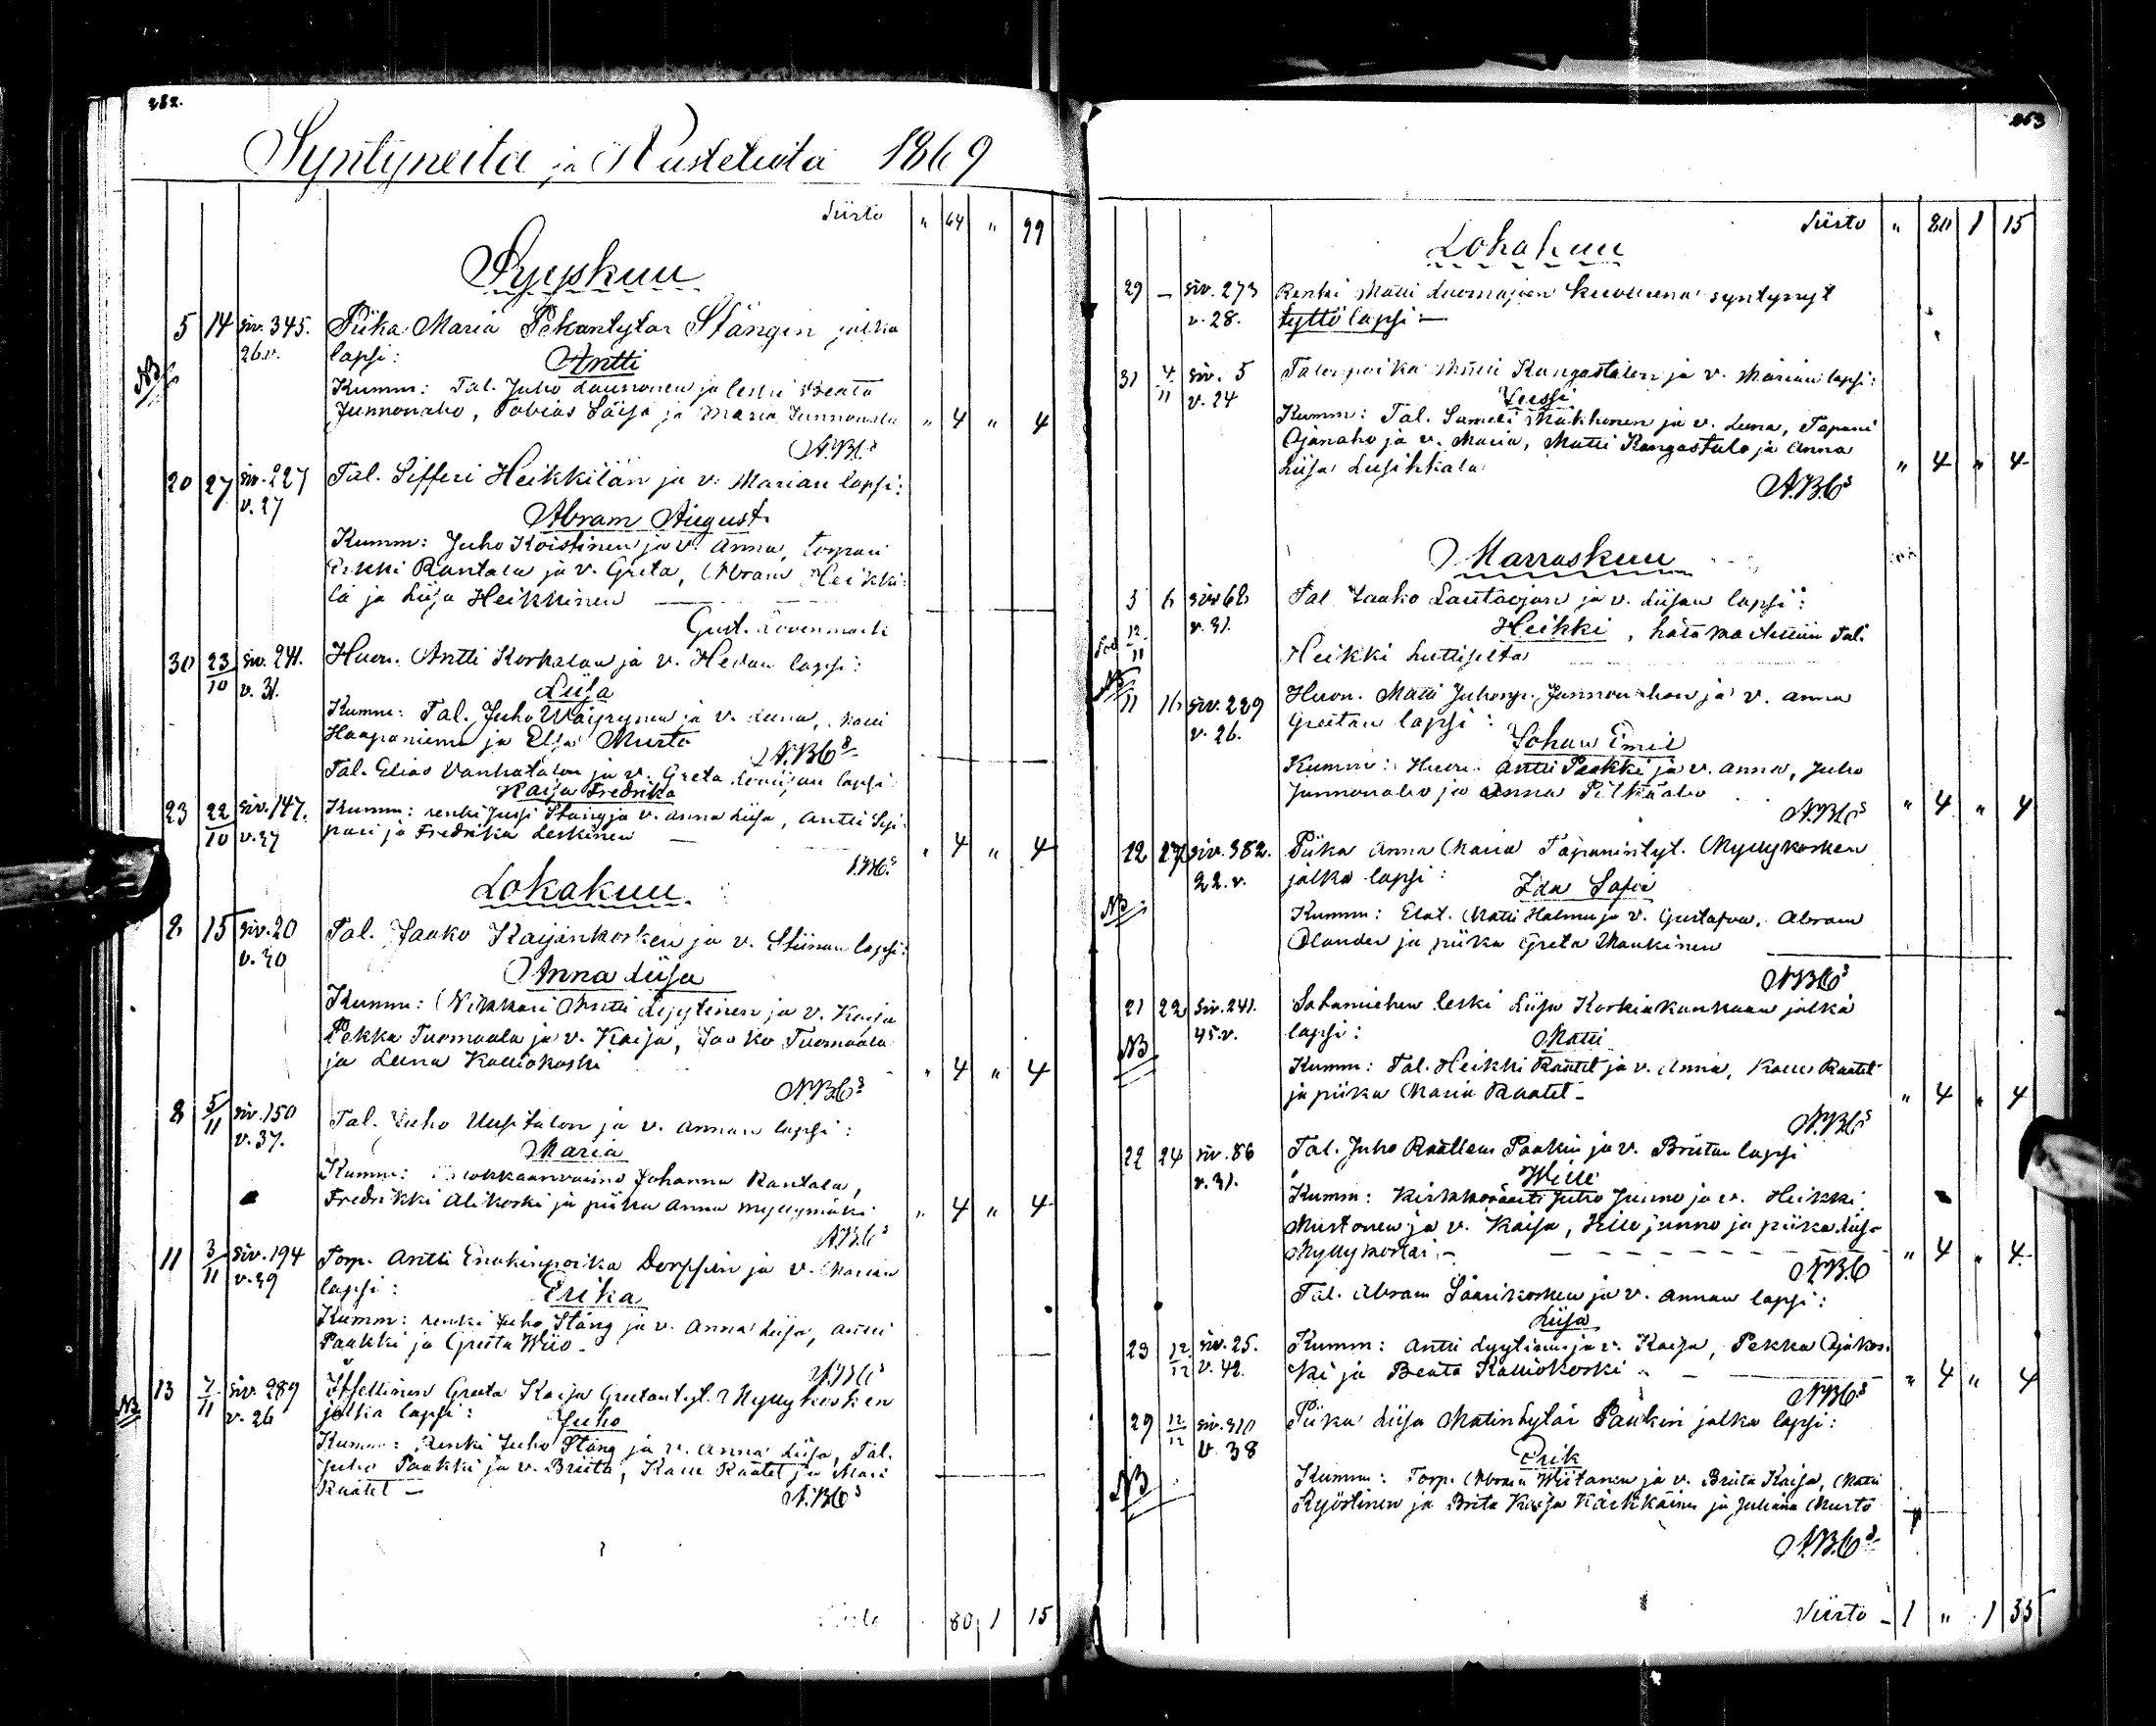 362.
Syntyneitä ja Kastetuita 1869
Siirto " 64 " 99
Syyskuu
5 14 siv. 345. Piika Maria Pekantytar Stångin jalka
26 v. lapsi: Antti
NB
Kumm: Tal. Juho Lauronen ja leski Beata
Junnonaho, Tobias Säisä ja Maria Junnonaho " 4 " 4
N.B.C:s
20 27 siv. 227 Tal. Sifferi Heikkilän ja v. Marian lapsi:
v. 27
Abram August
Kumm: Juho Koistinen ja v. Anna, torpari
Erkki Rantala ja v. Greta, Abram Heikki-
lä ja Liisa Heikkinen —
Gust. Lövenmark
30 23/10 siv. 241. Huon. Antti Korhalan ja v. Hedan lapsi:
v. 31. Liisa
Kumm: Tal. Juho Wäyrynen ja v. Leena, Kalle
Haapaniemi ja Elsa Murto
N.B.C:s
Tal. Elias Vanhatalon ja v. Greta Loviisan lapsi
Kaisa Fredrika
23 22/10 siv. 147. Kumm: renki Jussi Stång ja v. Anna Liisa, Antti Sepi-
v. 27 pari ja Fredrika Leskinen — " 4 " 4
N.B.C:s
Lokakuu
2 15 siv. 20 Tal. Jaako Kaijankosken ja v. Stiinan lapsi:
v. 30
Anna Liisa
Kumm: Nikkari Antti Lyytinen ja v. Kaisa
Pekka Tuomaala ja v. Kaisa, Jaako Tuomaala
ja Leena Kalliokoski " 4 " 4
N.B.C:s
8 5/11 siv. 150 Tal. Juho Uusitalon ja v. Annan lapsi:
v. 37. Maria
Kumm: Johanna Rantala,
Fredrikki Alikoski ja piika Anna Myllymäki " 4 " 4
N.B.C:s
11 3/11 siv. 194 Torp. Antti Enokinpoika Dorppin ja v. Marian
v. 39 lapsi: Erika
Kumm: renki Juho Stång ja v. Anna Liisa, Antti
Paakki ja Greeta Wiio —
N.B.C:s
13 7/11 siv. 289 Itsellinen Greeta Kaisa Greetantyt. Myllykosken
NB v. 26 jalka lapsi: Juho
Kumm: Renki Juho Stång ja v. Anna Liisa, Tal.
Juho Paakki ja v. Briita, Kalle Räätel ja Mari
Räätel —
N.B.C:s
80 1 15
363
Siirto " 80 1 15
Lokakuu
29 — siv. 273 Renki Matti Luomajoen kuolleena syntynyt
v. 28. tyttölapsi —
31 4/11 siv. 5 Talonpoika Matti Kangastalon ja v. Marian lapsi:
v. 24 Jussi
Kumm: Tal. Sameli Makkonen ja v. Leena, Tapani
Ojanaho ja v. Maria, Matti Kangastalo ja Anna
Liisa Lusikkala " 4 " 4
N.B.C:s
Marraskuu
5 6 siv 62 Tal Jaako Lautaojan ja v. Liisan lapsi:
12/11 v. 31. Heikki, hätä kastettiin Tal.
Heikki Luttiselta
NB
11 16 siv. 229 Huon. Matti Juhonp. Junnonahon ja v. Anna
v. 26. Greetan lapsi:
Johan Emil
Kumm: Huon. Antti Paakki ja v. Anna, Juho
Junnonaho ja Anna Pitkäaho " 4 " 4
N.B.C:s
12 27 siv. 382. Piika Anna Maria Tapanintyt. Myllykosken
22. v. jalka lapsi: Ida Sofia
NB
Kumm: Elat. Matti Halmu ja v. Gustafva, Abram
Olander ja piika Greta Maukinen
N.B.C:s
21 22 siv. 241. Sotamiehen leski Liisa Koskiakankaan jalka
45. v. lapsi: Matti
NB
Kumm: Tal. Heikki Räätel ja v. Anna, Kalle Räätel
ja piika Maria Räätel — " 4 " 4
N.B.C:s
22 24 siv. 86 Tal. Juho Räättem Paakin ja v. Briitan lapsi
v. 31. Wille
Kumm: Kirkkoväärti Juho Junno ja v. Heikki
Mustonen ja v. Kaisa, Kalle Junno ja piika Liisa
Myllykoski — " 4 " 4
N.B.C
Tal. Abram Saarikosken ja v. Annan lapsi:
Liisa
23 12/12 siv. 25. Kumm: Antti Lyytinen ja v. Kaisa, Pekka Ojakos-
v. 42. ki ja Beata Kalliokoski " 4 " 4
N.B.C:s
29 12/12 siv. 310 Piika Liisa Matintytär Paakin jalka lapsi:
v. 38
Erik
NB
Kumm: Torp. Abram Wiitanen ja v. Briita Kaisa, Matti
Ryöstinen ja Brita Kaisa Kärkkäinen ja Juliana Murto
N.B.C:s
Siirto — 1 " 1 35